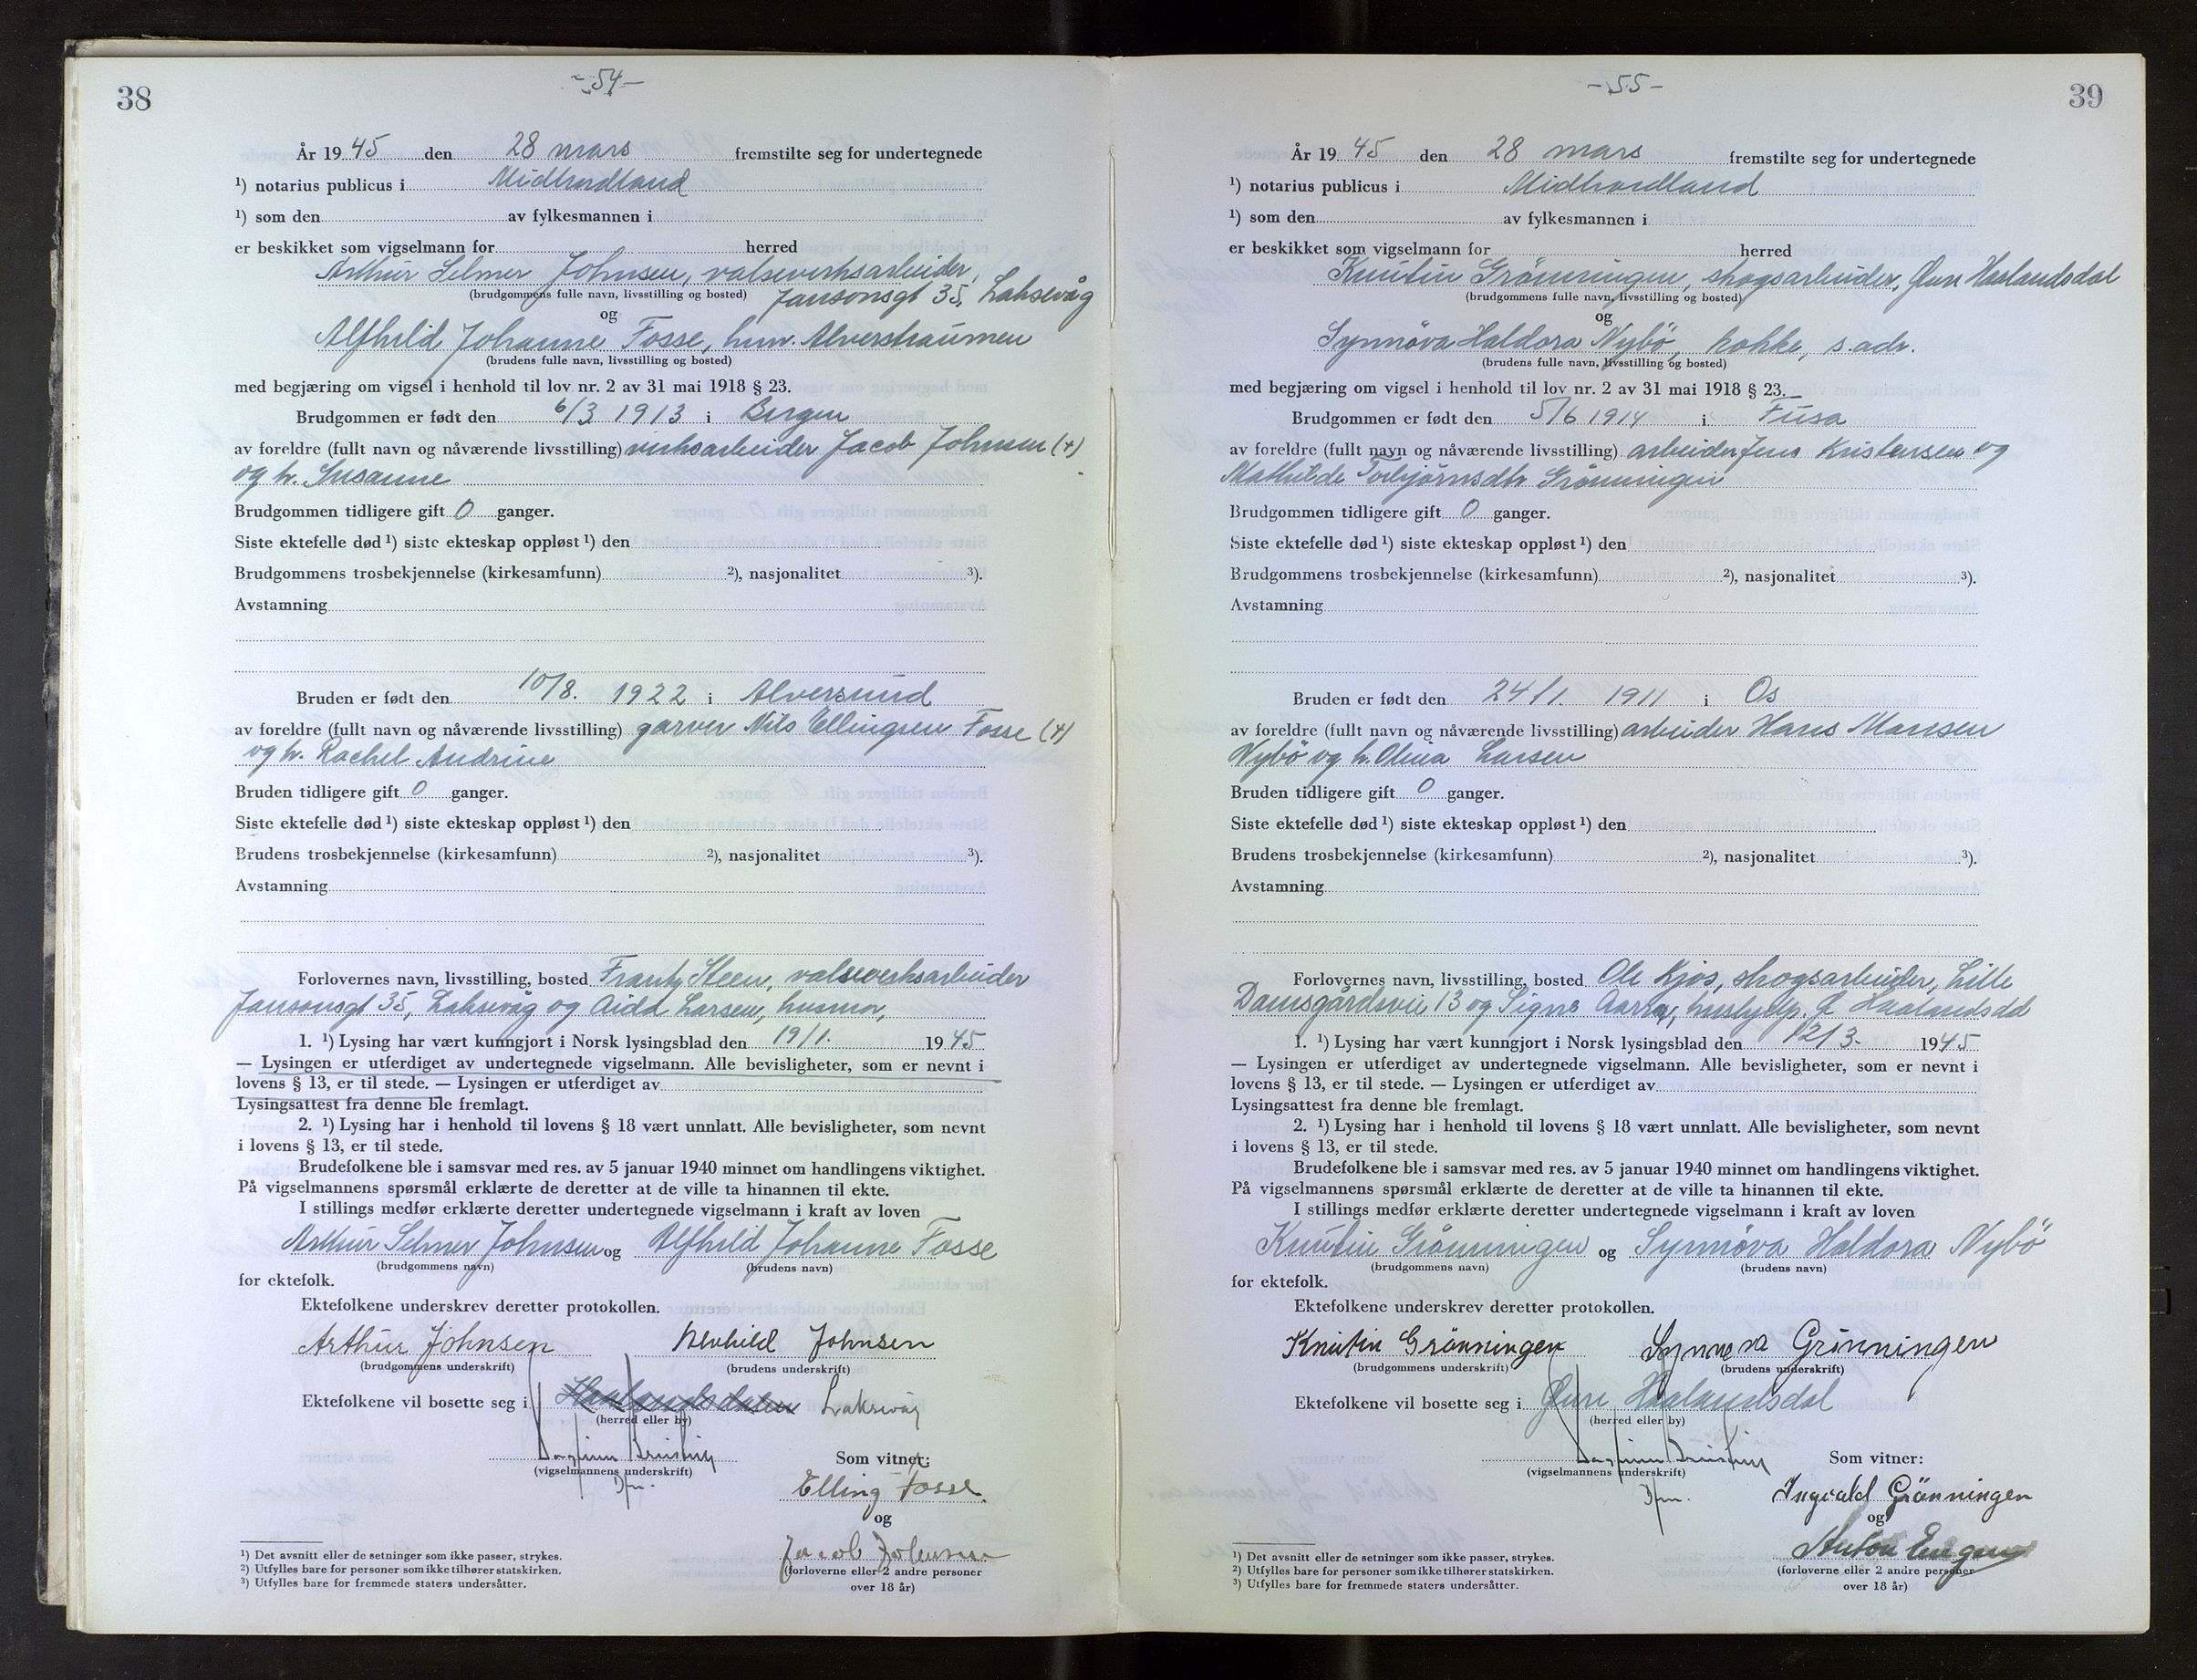 38
- 54 -
År 19 45 den 28 mars fremstilte seg for undertegnede
¹) notarius publicus i Midhordland
¹) som den av fylkesmannen i
er beskikket som vigselmann for herred
Arthur Selmer Johnsen, valseverksarbeider,
(brudgommens fulle navn, livsstilling og bosted) Jansonsgt 35, Laksevåg
og
Alfhild Johanne Fosse, hun. Alverstraumen
(brudens fulle navn, livsstilling og bosted)
med begjæring om vigsel i henhold til lov nr. 2 av 31 mai 1918 § 23.
Brudgommen er født den 6/3 1913 i Bergen
av foreldre (fullt navn og nåværende livsstilling) verksarbeider Jacob Johnsen (+)
og h. Susanne
Brudgommen tidligere gift 0 ganger.
Siste ektefelle død ¹) siste ekteskap oppløst ¹) den
Brudgommens trosbekjennelse (kirkesamfunn) ²), nasjonalitet ³).
Avstamning
Bruden er født den 10/8. 1922 i Alversund
av foreldre (fullt navn og nåværende livsstilling) garver Nils Ellingsen Fosse (+)
og h. Rachel Andrine
Bruden tidligere gift 0 ganger.
Siste ektefelle død ¹) siste ekteskap oppløst ¹) den
Brudens trosbekjennelse (kirkesamfunn) ²), nasjonalitet ³).
Avstamning
Forlovernes navn, livsstilling, bosted Frantz Steen, valseverksarbeider
Jansonsgt 35, Laksevåg og Aida Larsen, husmor,
1. ¹) Lysing har vært kunngjort i Norsk lysingsblad den 19/1. 19 45
— Lysingen er utferdiget av undertegnede vigselmann. Alle bevisligheter, som er nevnt i
lovens § 13, er til stede. — Lysingen er utferdiget av
Lysingsattest fra denne ble fremlagt.
2. ¹) Lysing har i henhold til lovens § 18 vært unnlatt. Alle bevisligheter, som nevnt
i lovens § 13, er til stede.
Brudefolkene ble i samsvar med res. av 5 januar 1940 minnet om handlingens viktighet.
På vigselmannens spørsmål erklærte de deretter at de ville ta hinannen til ekte.
I stillings medfør erklærte deretter undertegnede vigselmann i kraft av loven
Arthur Selmer Johnsen og Alfhild Johanne Fosse
(brudgommens navn) (brudens navn)
for ektefolk.
Ektefolkene underskrev deretter protokollen.
Arthur Johnsen Alvhild Johnsen
(brudgommens underskrift) (brudens underskrift)
Ektefolkene vil bosette seg i Haalandsdalen Laksevåg
(herred eller by)
Som vitner:
(vigselmannens underskrift)
Elling Fosse.
og
Jacob Johnsen
(forloverne eller 2 andre personer
over 18 år)
¹) Det avsnitt eller de setninger som ikke passer, strykes.
²) Utfylles bare for personer som ikke tilhører statskirken.
³) Utfylles bare for fremmede staters undersåtter.
39
- 55 -
År 19 45 den 28 mars fremstilte seg for undertegnede
¹) notarius publicus i Midhordland
¹) som den av fylkesmannen i
er beskikket som vigselmann for herred
Knutin Grönningen, skogsarbeider, Øvre Haalandsdal
(brudgommens fulle navn, livsstilling og bosted)
og
Synnöva Haldora Nybö, kokke, s. adr.
(brudens fulle navn, livsstilling og bosted)
med begjæring om vigsel i henhold til lov nr. 2 av 31 mai 1918 § 23.
Brudgommen er født den 5/6 1914 i Fusa
av foreldre (fullt navn og nåværende livsstilling) arbeider Jens Kristensen og
Mathilde Torbjörnsdtr Grönningen
Brudgommen tidligere gift 0 ganger.
Siste ektefelle død ¹) siste ekteskap oppløst ¹) den
Brudgommens trosbekjennelse (kirkesamfunn) ²), nasjonalitet ³).
Avstamning
Bruden er født den 24/1. 1911 i Os
av foreldre (fullt navn og nåværende livsstilling) arbeider Hans Mansen
Nybö og h. Olina Larsen
Bruden tidligere gift 0 ganger.
Siste ektefelle død ¹) siste ekteskap oppløst ¹) den
Brudens trosbekjennelse (kirkesamfunn) ²), nasjonalitet ³).
Avstamning
Forlovernes navn, livsstilling, bosted Ole Kjos, skogsarbeider, Lille
Damsgårdsvei 13 og Signe hushjelp. Ø Haalandsdal
1. ¹) Lysing har vært kunngjort i Norsk lysingsblad den 12/3. 1945
— Lysingen er utferdiget av undertegnede vigselmann. Alle bevisligheter, som er nevnt i
lovens § 13, er til stede. — Lysingen er utferdiget av
Lysingsattest fra denne ble fremlagt.
2. ¹) Lysing har i henhold til lovens § 18 vært unnlatt. Alle bevisligheter, som nevnt
i lovens § 13, er til stede.
Brudefolkene ble i samsvar med res. av 5 januar 1940 minnet om handlingens viktighet.
På vigselmannens spørsmål erklærte de deretter at de ville ta hinannen til ekte.
I stillings medfør erklærte deretter undertegnede vigselmann i kraft av loven
Knutin Grönningen og Synnöva Haldora Nybö
(brudgommens navn) (brudens navn)
for ektefolk.
Ektefolkene underskrev deretter protokollen.
Knutin Grönningen Synnøva Grönningen
(brudgommens underskrift) (brudens underskrift)
Ektefolkene vil bosette seg i Øvre Haalandsdal
(herred eller by)
Som vitner:
(vigselmannens underskrift)
Ingvald Grönningen
og
Anton
(forloverne eller 2 andre personer
over 18 år)
¹) Det avsnitt eller de setninger som ikke passer, strykes.
²) Utfylles bare for personer som ikke tilhører statskirken.
³) Utfylles bare for fremmede staters undersåtter.